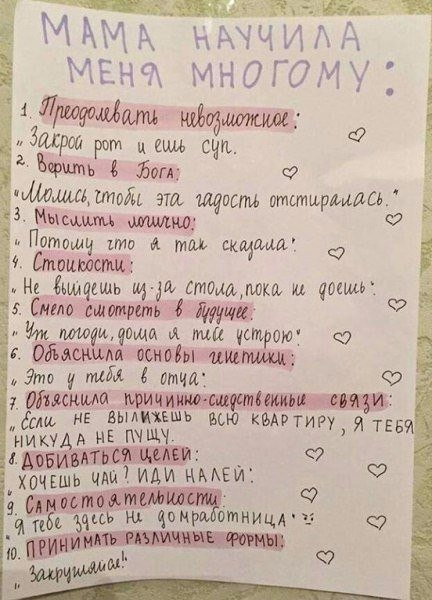 МАМА НАУЧИЛА
МЕНЯ МНОГОМУ:
1. Преодолевать невозможное:
„Закрой рот и ешь суп.
2. Верить в Бога:
„Молись, чтобы эта гадость отстиралась."
3. Мыслить логично:
„Потому что я так сказала".
4. Стойкости:
„Не выйдешь из-за стола, пока не доешь".
5. Смело смотреть в будущее:
„Уж погоди, дома я тебе устрою"
6. Объяснила основы генетики:
„Это у тебя в отца".
7. Объяснила причинно-следственные связи:
„Если НЕ ВЫЛИЖЕШЬ ВСЮ КВАРТИРУ, Я ТЕБЯ
НИКУДА НЕ ПУЩУ.
8. ДОБИВАТЬСЯ ЦЕЛЕЙ:
„ХОЧЕШЬ ЧАЙ? ИДИ НАЛЕЙ".
9. Самостоятельности:
"Я тебе здесь не домработница"
10. ПРИНИМАТЬ РАЗЛИЧНЫЕ ФОРМЫ:
„Закругляйся!"